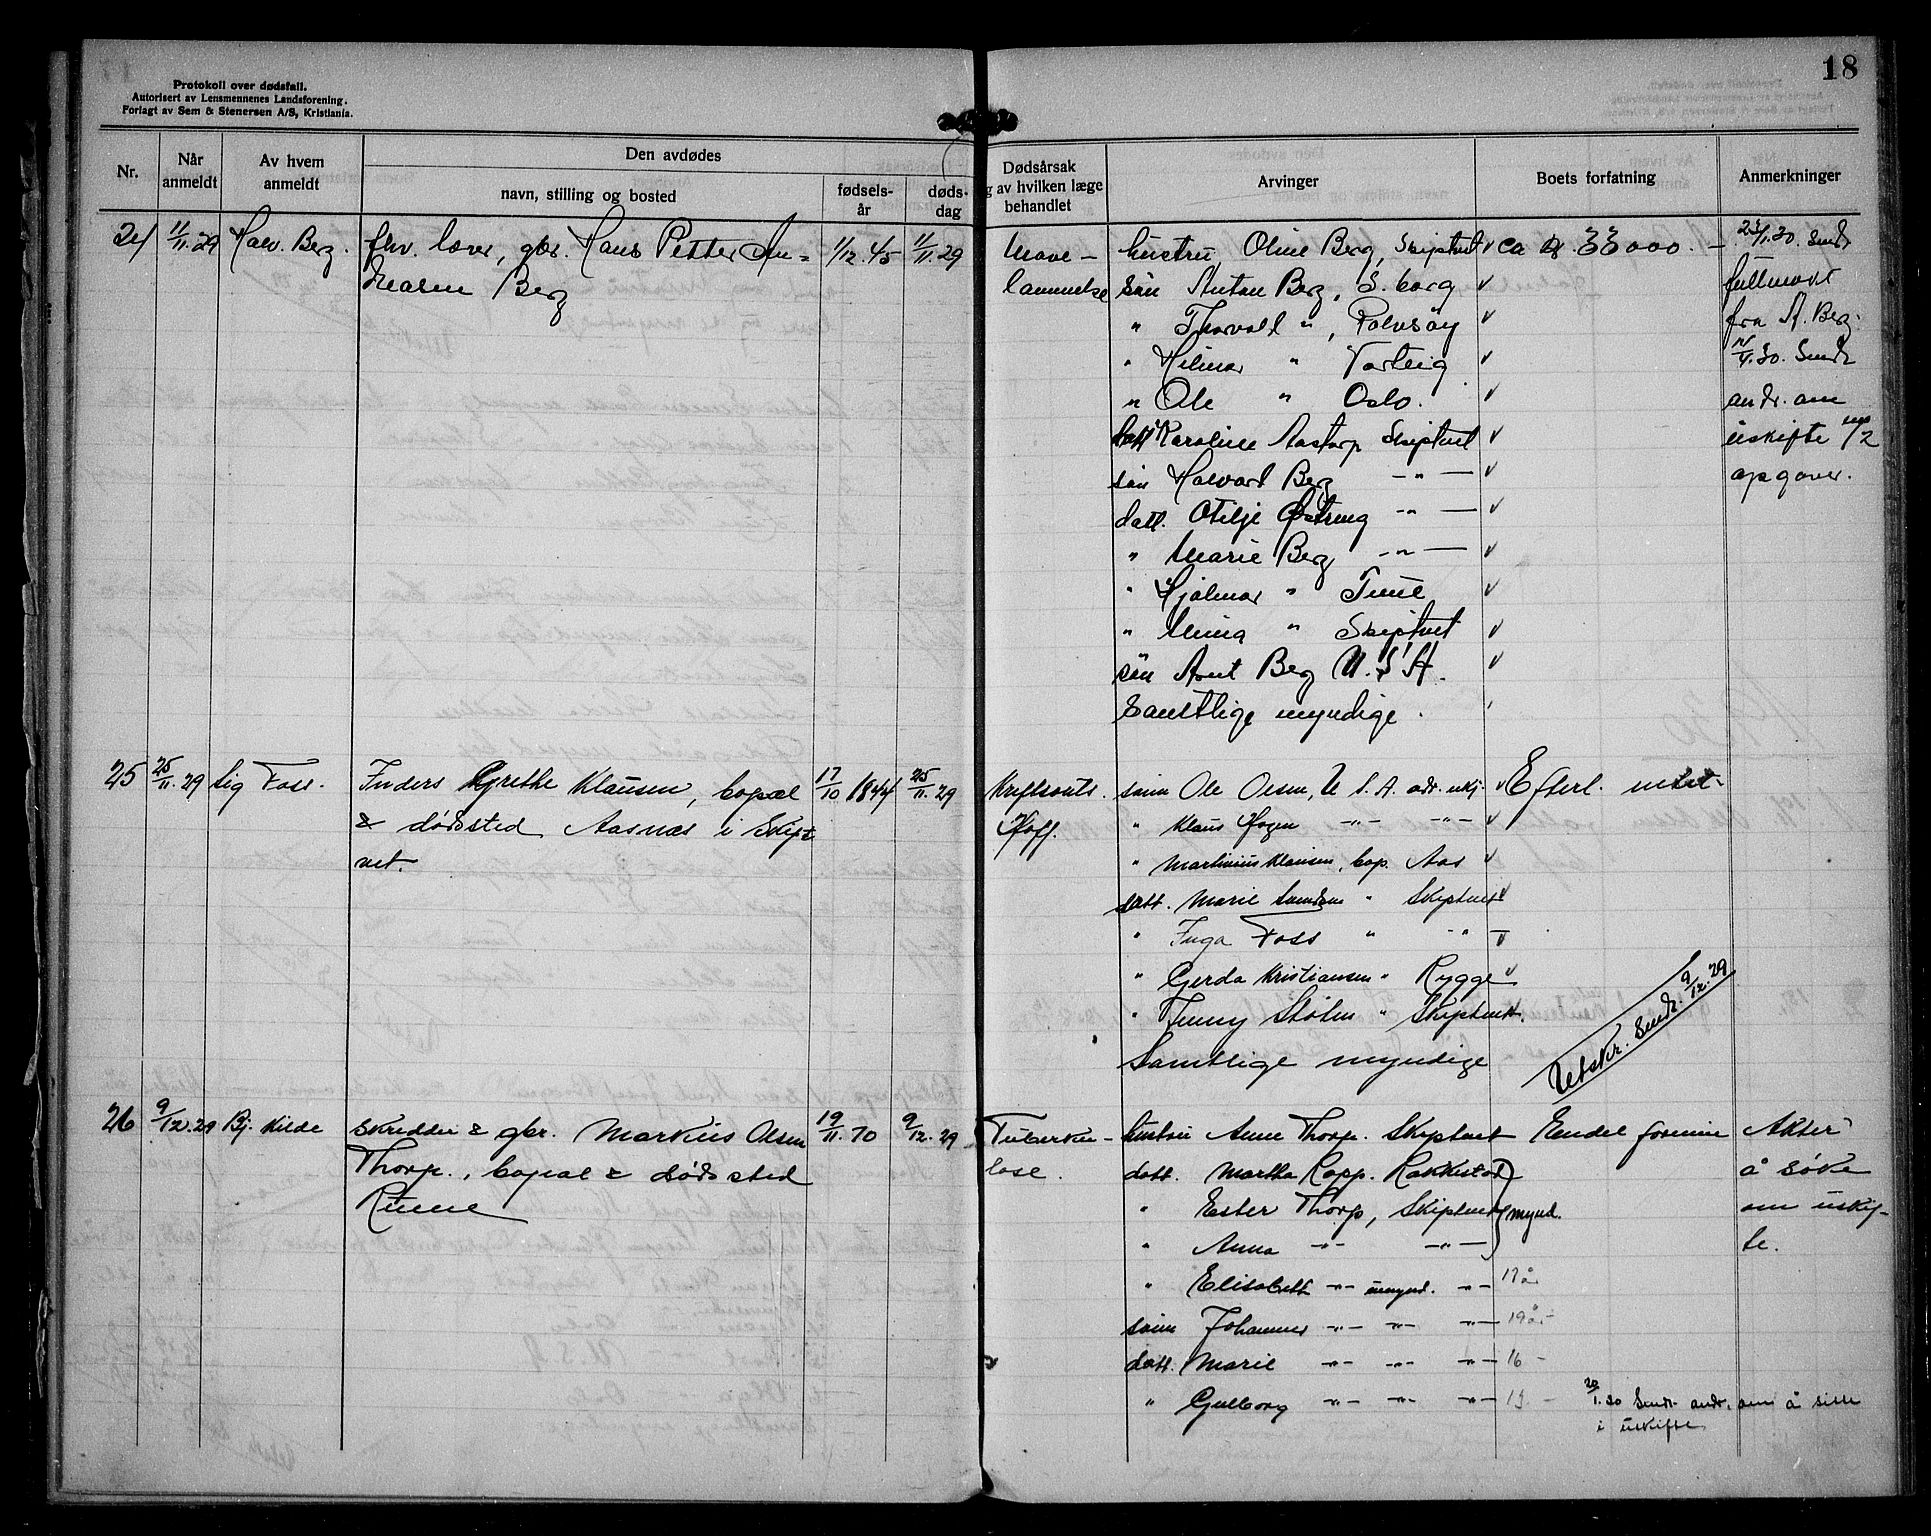 18
Protokoll over dødsfall.
Autorisert av Lensmennenes Landsforening.
Forlagt av Sem & Stenersen A/S, Kristiania.
Nr.
Når anmeldt
Av hvem anmeldt
Den avdødes
navn, stilling og bosted
fødsels-år
døds-dag
Dødsårsak
og av hvilken læge
behandlet
Arvinger
Boets forfatning
Anmerkninger
24 11/11.29 Halv. Berg. fhv. lærer, gbr. Hans Petter An= 1/12.45 11/11.29 Mave- hustru Oline Berg, Skiptvet v ca kr. 33000.- 23/1.30. Sendt
dreasen Berg lammelse søn Anton Berg, S.borg v fullmakt
" Thorvald ", Rolvsøy v fra A. Berg.
" Hilmar " Varteig v 11/4.30. Sendt
" Ole " Oslo. v andr. om
datt. Karoline Aastorp Skiptvet v uskifte
søn Halvard Berg -"- v opgaver.
datt. Otilje Østreng -"- v
" Marie Berg -"- v
" Hjalmar " Tune v
" Minna " Skiptvet v
søn Arnt Berg U.S.A. v
Samtlige myndige.
25 25/11.29 Sig Foss. Inders Grethe Klausen, bopæl 17/10 1844 25/11.29 Kreftsvulst. sønn Ole Olsen, U.S.A. adr. ukj. v Efterl. intet.
& dødssted Aasnæs i Skipt= Hoff. " Klaus Hagen -"- -"- v
vet. " Martinius Klausen, bop. Aas v
datt. Marie " Skiptvet v
" Inga Foss " "
" Gerda Kristiansen " Rygge v
" Jenny Stølen " Skiptvet v.
Samtlige myndige
Utskr. Sendt. 9/12.29
26 9/12.29 Bj. Kilde Skredder & gbr. Markus Olsen 19/11.70 9/12.29 Tuberku- hustru Anne Thorp. Skiptvet Endel formue Akter
Thorp., bopæl & dødssted lose. datt. Martha Kopp. Rakkestad å søke
Runne " Ester Thorp, Skiptvet mynd. om uskif-
" Anna -"- -"- te.
" Elisabett -"- umynd. -"- 17 år
sønn Johannes -"- -"- -"- 19 år
datt. Marie -"- -"- -"- 16 -
" Gulborg -"- -"- -"- 20/1.30 Sendt andr. om å sitte
i uskifte